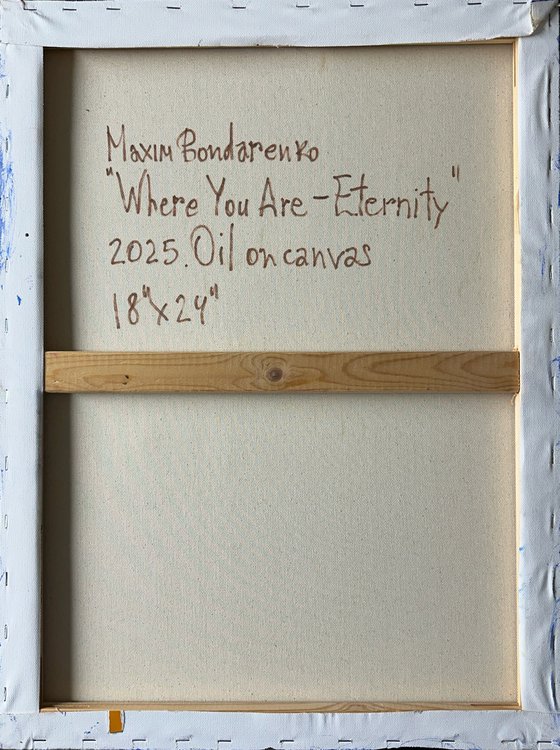 Maxim Bondarenko
"Where You Are - Eternity"
2025. Oil on canvas
18"x24"